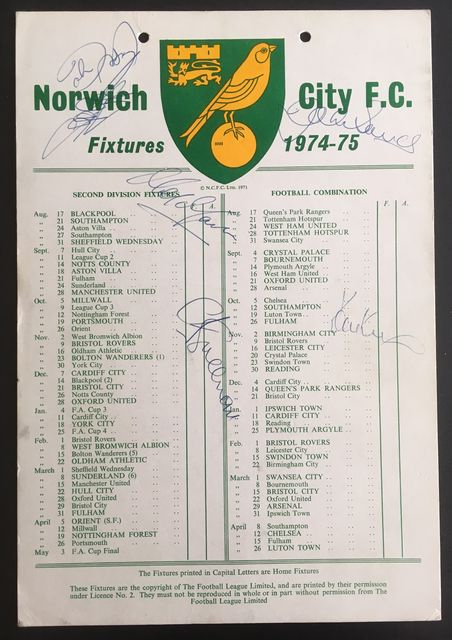 Norwich City F.C.
Fixtures 1974-75
© N.C.F.C. Ltd. 1971
SECOND DIVISION FIXTURES
F. A.
Aug. 17 BLACKPOOL
" 21 SOUTHAMPTON
" 24 Aston Villa
" 27 Southampton
" 31 SHEFFIELD WEDNESDAY
Sept. 7 Hull City
" 11 League Cup 2
" 14 NOTTS COUNTY
" 18 ASTON VILLA
" 21 Fulham
" 24 Sunderland
" 28 MANCHESTER UNITED
Oct. 5 MILLWALL
" 9 League Cup 3
" 12 Nottingham Forest
" 19 PORTSMOUTH
" 26 Orient
Nov. 2 West Bromwich Albion
" 9 BRISTOL ROVERS
" 16 Oldham Athletic
" 23 BOLTON WANDERERS (1)
" 30 York City
Dec. 7 CARDIFF CITY
" 14 Blackpool (2)
" 21 BRISTOL CITY
" 26 Notts County
" 28 OXFORD UNITED
Jan. 4 F.A. Cup 3
" 11 Cardiff City
" 18 YORK CITY
" 25 F.A. Cup 4
Feb. 1 Bristol Rovers
" 8 WEST BROMWICH ALBION
" 15 Bolton Wanderers (5)
" 22 OLDHAM ATHLETIC
March 1 Sheffield Wednesday
" 8 SUNDERLAND (6)
" 15 Manchester United
" 22 HULL CITY
" 28 Oxford United
" 29 Bristol City
" 31 FULHAM
April 5 ORIENT (S.F.)
" 12 Millwall
" 19 NOTTINGHAM FOREST
" 26 Portsmouth
May 3 F.A. Cup Final
FOOTBALL COMBINATION
F. A.
Aug. 17 Queen's Park Rangers
" 21 Tottenham Hotspur
" 24 WEST HAM UNITED
" 28 TOTTENHAM HOTSPUR
" 31 Swansea City
Sept. 4 CRYSTAL PALACE
" 7 BOURNEMOUTH
" 14 Plymouth Argyle
" 16 West Ham United
" 21 OXFORD UNITED
" 28 Arsenal
Oct. 5 Chelsea
" 12 SOUTHAMPTON
" 19 Luton Town
" 26 FULHAM
Nov. 2 BIRMINGHAM CITY
" 9 Bristol Rovers
" 16 LEICESTER CITY
" 20 Crystal Palace
" 23 Swindon Town
" 30 READING
Dec. 4 Cardiff City
" 14 QUEEN'S PARK RANGERS
" 21 Bristol City
Jan. 1 IPSWICH TOWN
" 11 CARDIFF CITY
" 18 Reading
" 25 PLYMOUTH ARGYLE
Feb. 1 BRISTOL ROVERS
" 8 Leicester City
" 15 SWINDON TOWN
" 22 Birmingham City
March 1 SWANSEA CITY
" 8 Bournemouth
" 15 BRISTOL CITY
" 22 Oxford United
" 29 ARSENAL
" 31 Ipswich Town
April 8 Southampton
" 12 CHELSEA
" 15 Fulham
" 26 LUTON TOWN
The Fixtures printed in Capital Letters are Home Fixtures
These Fixtures are the copyright of The Football League Limited, and are printed by their permission
under Licence No. 2. They must not be reproduced in whole or in part without permission from The
Football League Limited